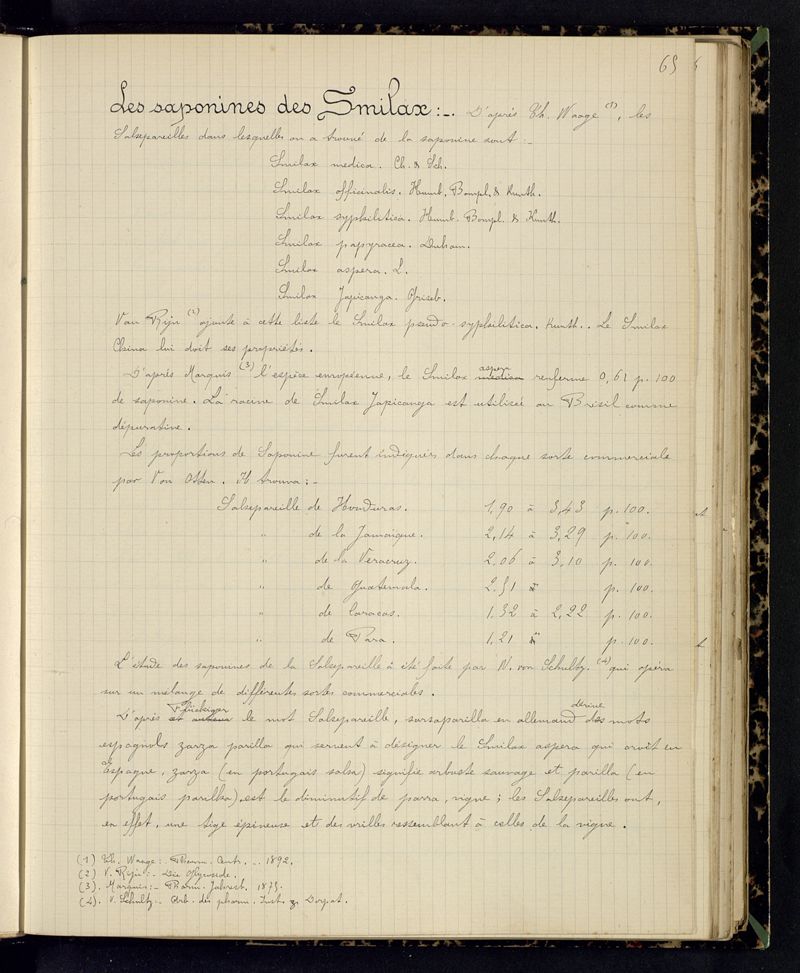 65
Les saponines des Smilax:-. D'après Th. Waage (1), les
Salsepareilles dans lesquelles on a trouvé de la saponine sont:-
Smilax medica. Ch. & Sch.
Smilax officinalis. Humb. Bompl. & Kunth.
Smilax syphilitica. Humb. Bompl. & Kunth.
Smilax papyracea. Duham.
Smilax aspera. L.
Smilax Japicanga. Griseb.
Van Rijn (2) ajoute à cette liste le Smilax pseudo-syphilitica. Kunth.. Le Smilax
China lui doit ses propriétés.
D'après Marquis (3) l'espèce européenne, le Smilax aspera renferme 0,61 p. 100
de saponine. La racine de Smilax Japicanga est utilisée au Brésil comme
dépurative.
Les proportions de Saponine furent indiquées dans chaque sorte commerciale
par Von Otten. Il trouva:-
Salsepareille de Honduras. 1,90 à 3,43 p. 100.
" de la Jamaïque. 2,14 à 3,29 p. 100.
" de la Veracruz. 2,06 à 3,10 p. 100.
" de Guatemala. 2,51 p. 100.
" de Caracas. 1,32 à 2,22 p. 100.
" de Para. 1,21 p. 100.
L'étude des saponines de la Salsepareille à été faite par W. von Schultz. (4) qui opéra
sur un mélange de différentes sortes commerciales.
D'après Flückiger le mot Salsepareille, sarsaparilla en allemand dérive des mots
espagnols zarza parilla qui servent à désigner le Smilax aspera qui croit en
Espagne, zarza (en portugais salsa) signifie arbuste sauvage et parilla (en
portugais parilha) est le diminutif de parra, vigne; les Salsepareilles ont,
en effet, une tige épineuse et des vrilles ressemblant à celles de la vigne.
(1) Th. Waage:- Pharm. Centr. -. 1892.
(2) V. Rijn:- Die Glycoside.
(3). Marquis:- Pharm. Jahresb. 1875.
(4). V. Schultz.- Arb. des pharm. Inst. z. Dorpat.